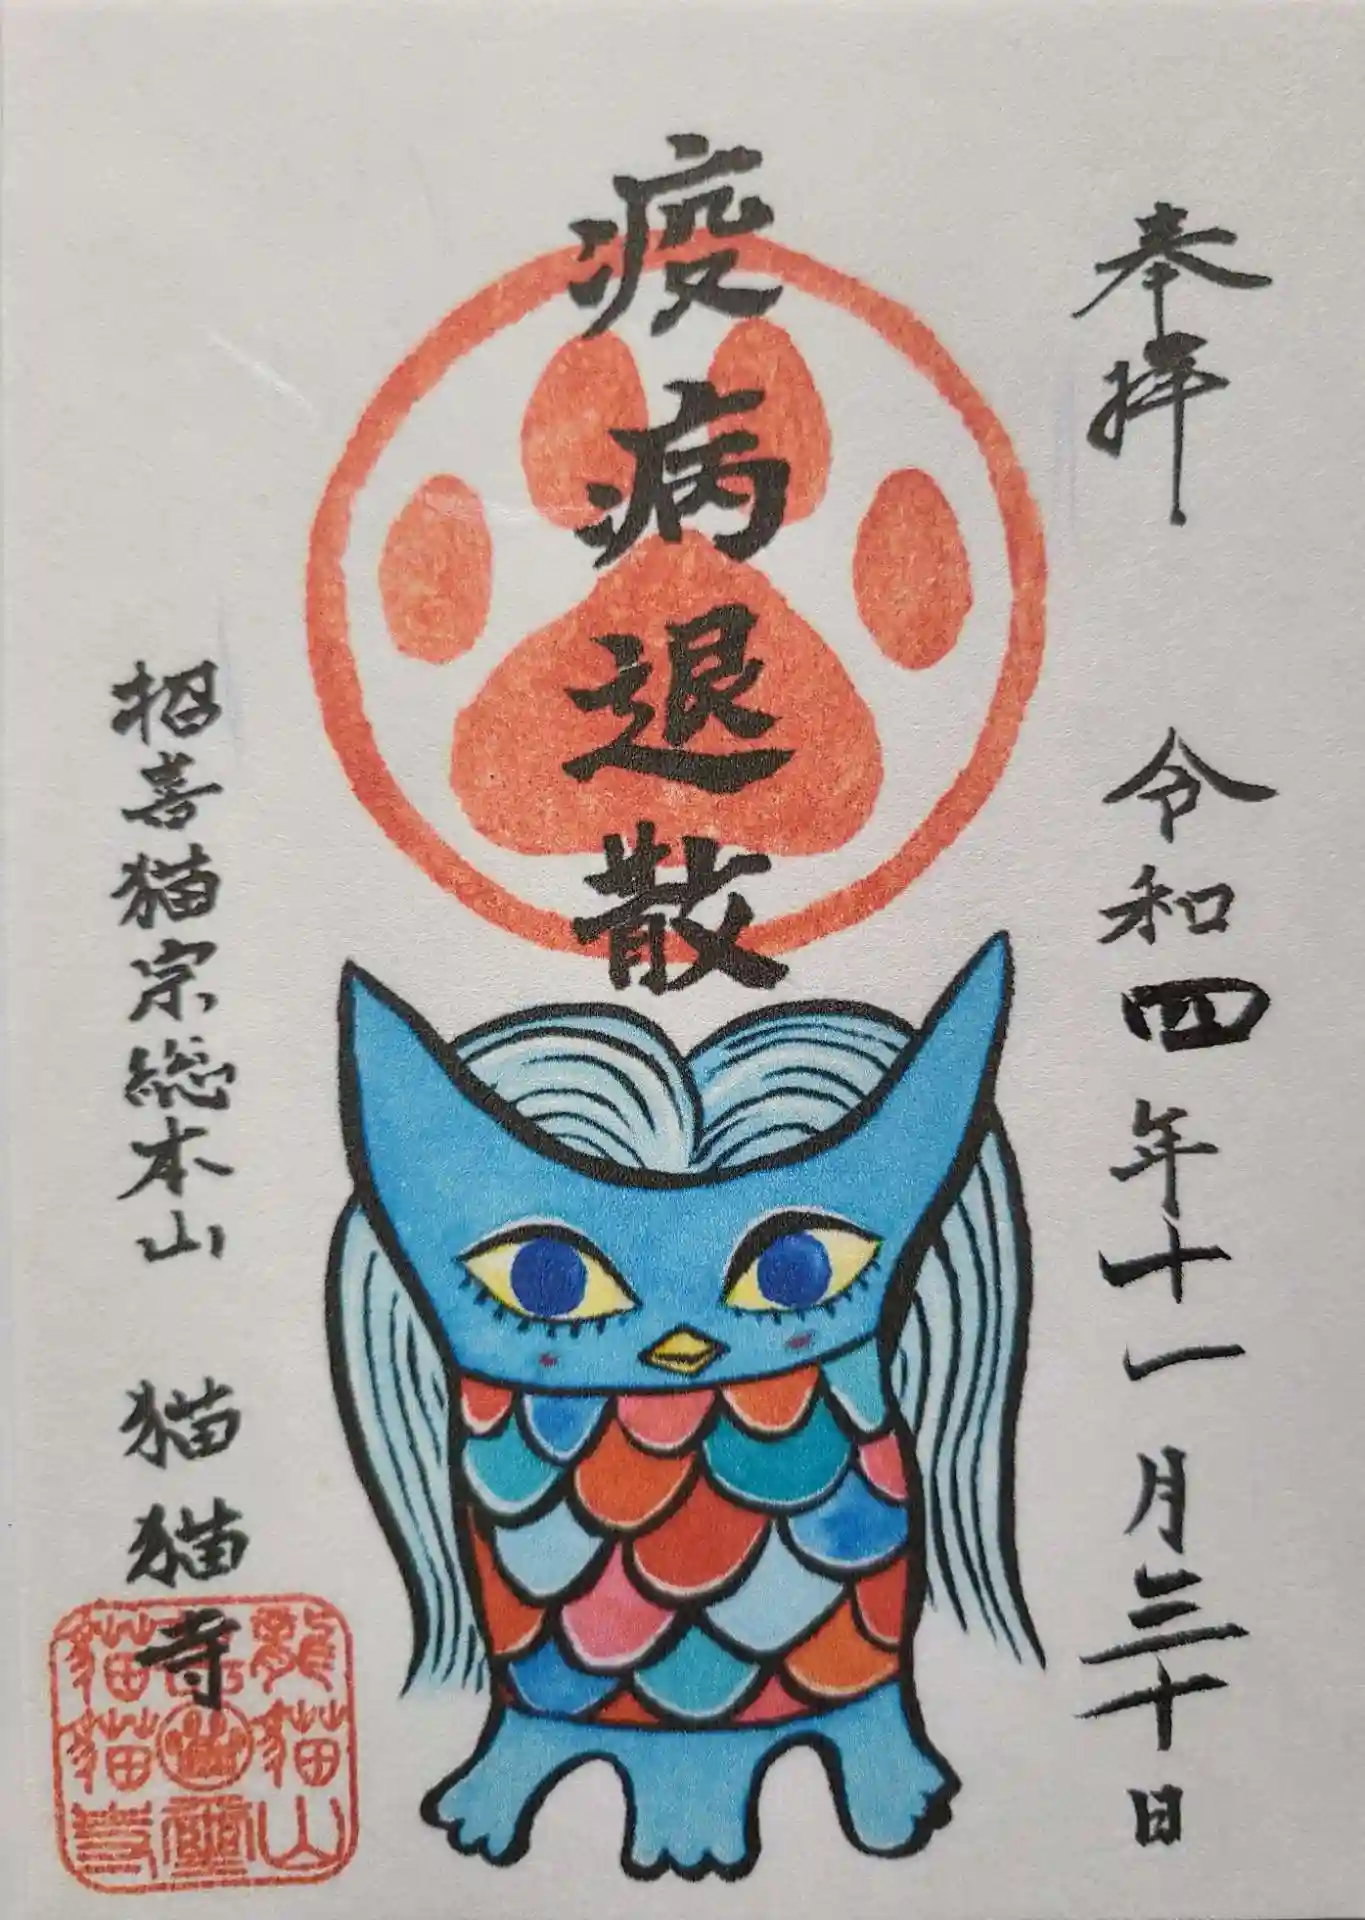 奉拝 令和四年十一月三十日
疫病退散
招喜猫宗総本山 猫猫寺
龍猫山
猫猫寺